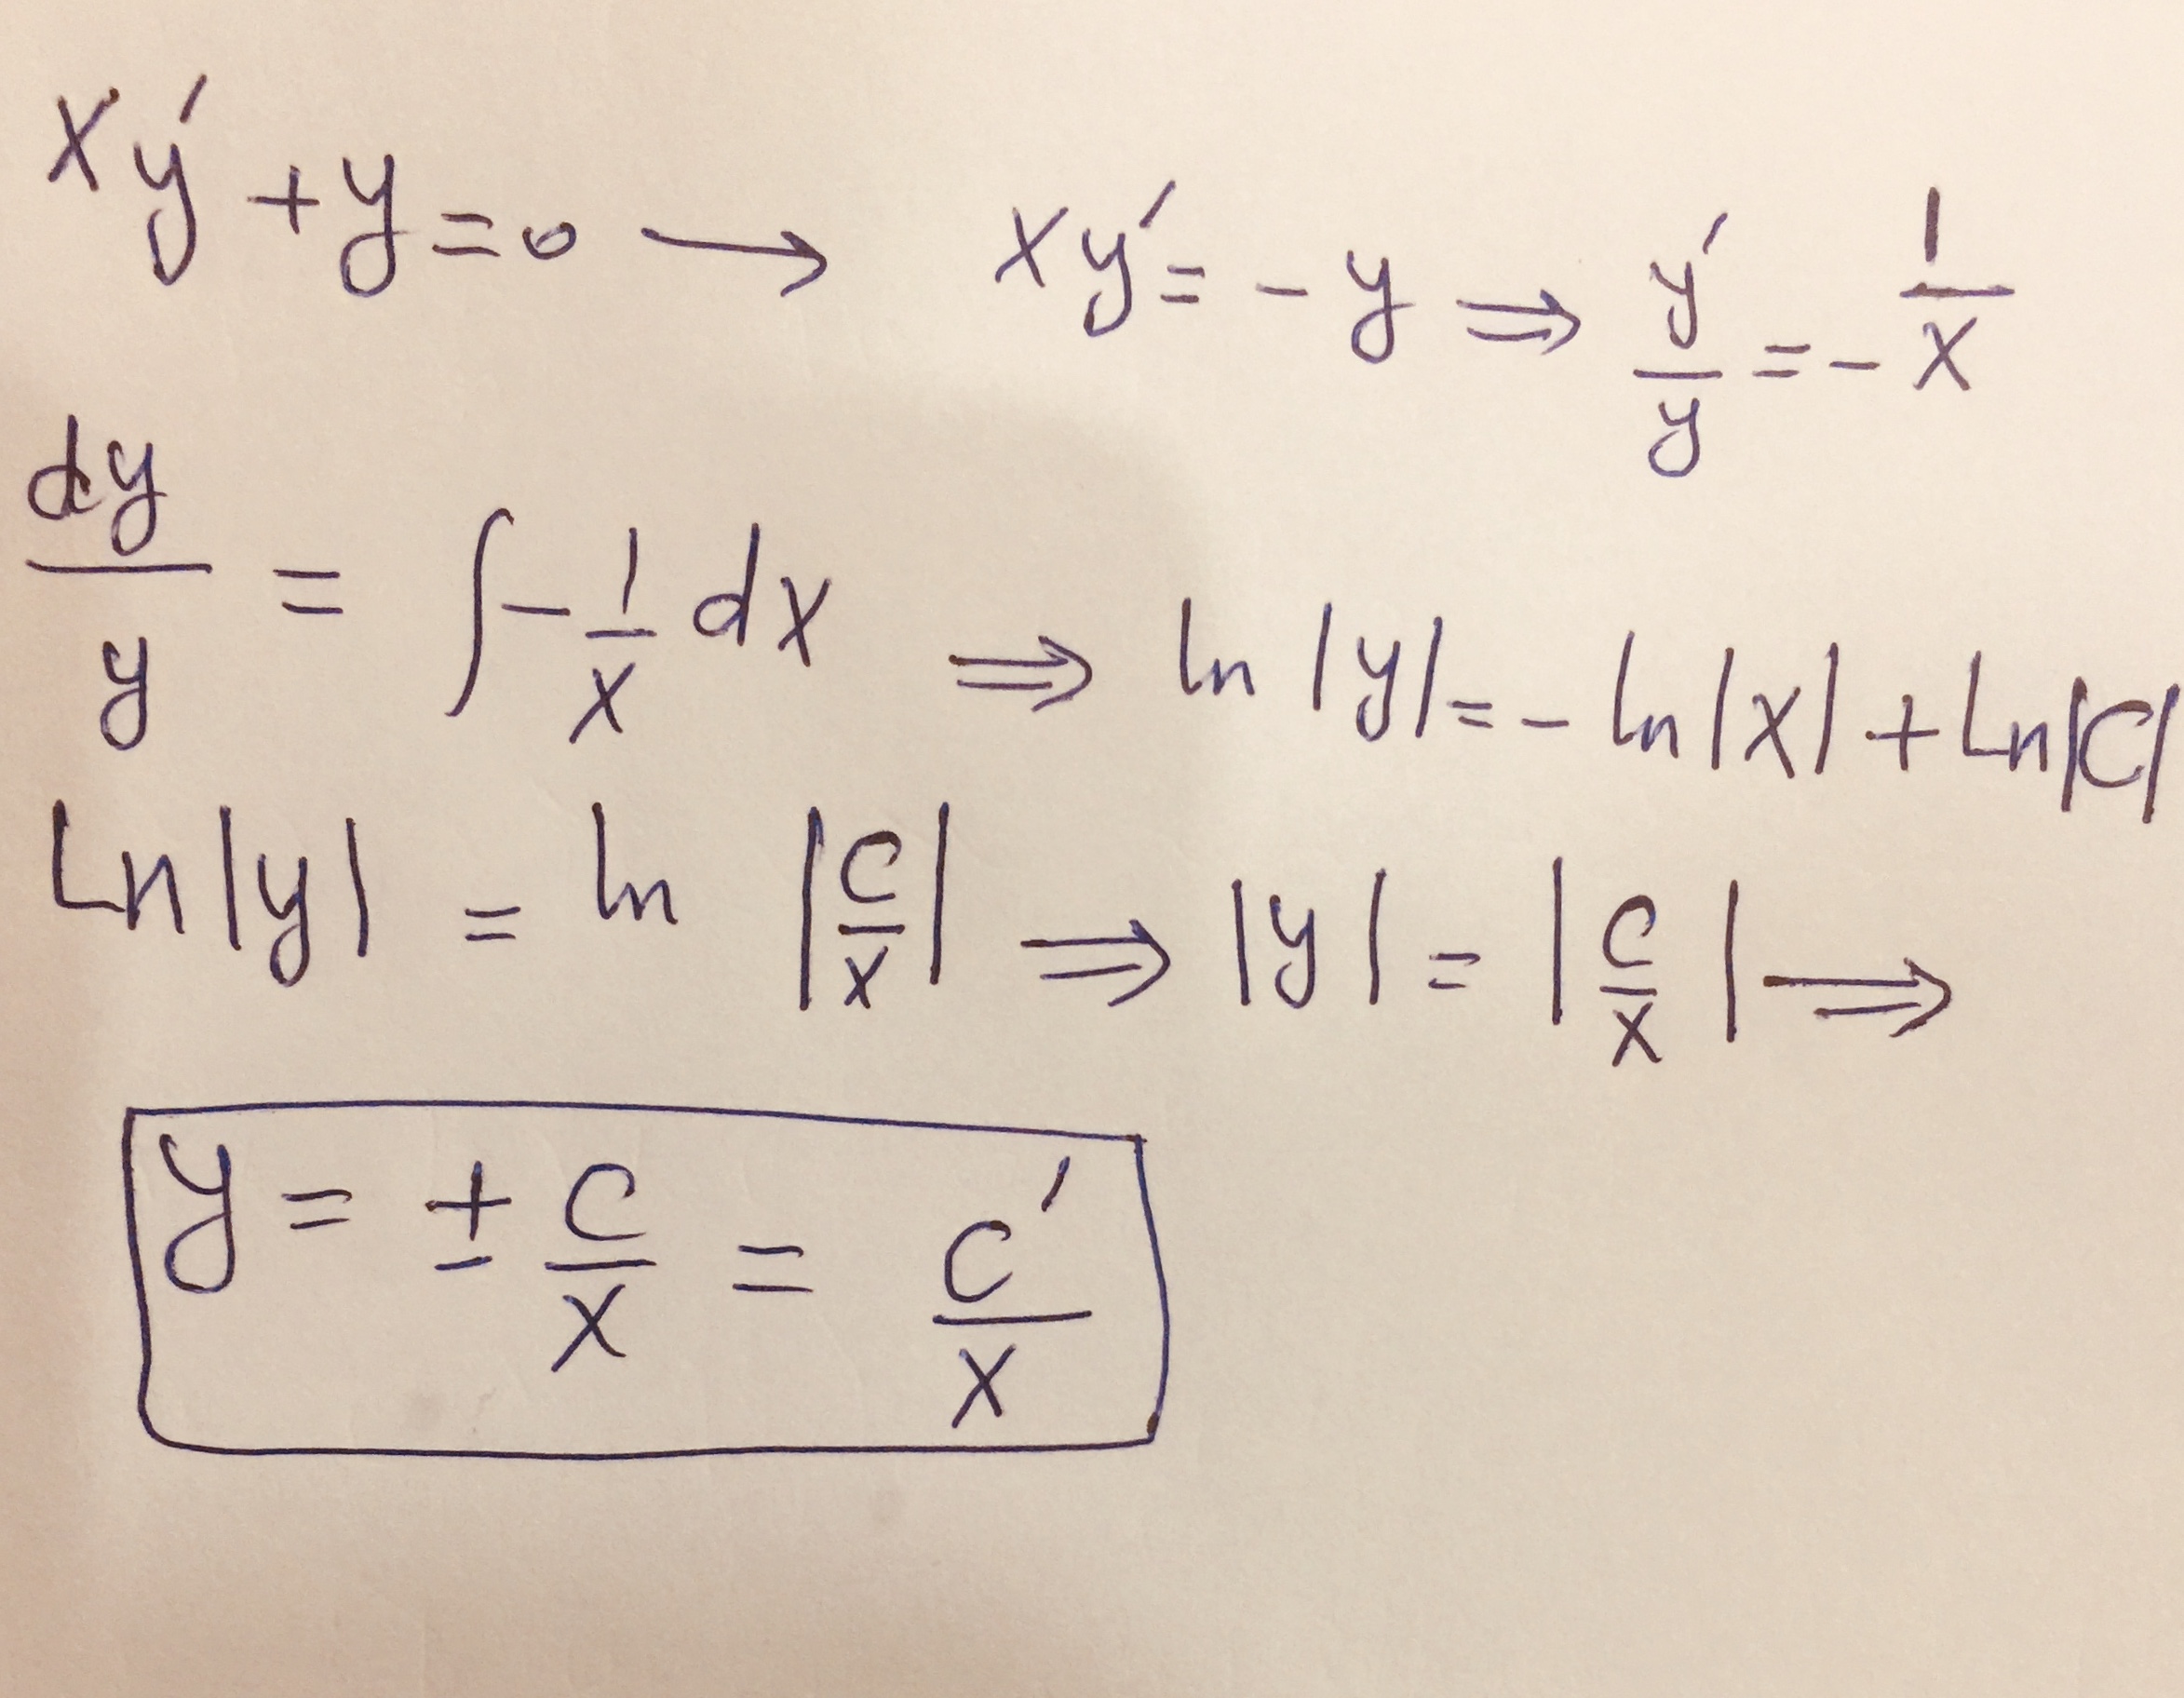 xy′ + y = 0 → xy′ = - y ⇒ y′/y = - 1/x
dy/y = ∫ - 1/x dx ⇒ ln |y| = - ln |x| + Ln |C|
Ln |y| = ln |c/x| ⇒ |y| = |c/x| ⇒
y = ± c/x = c′/x